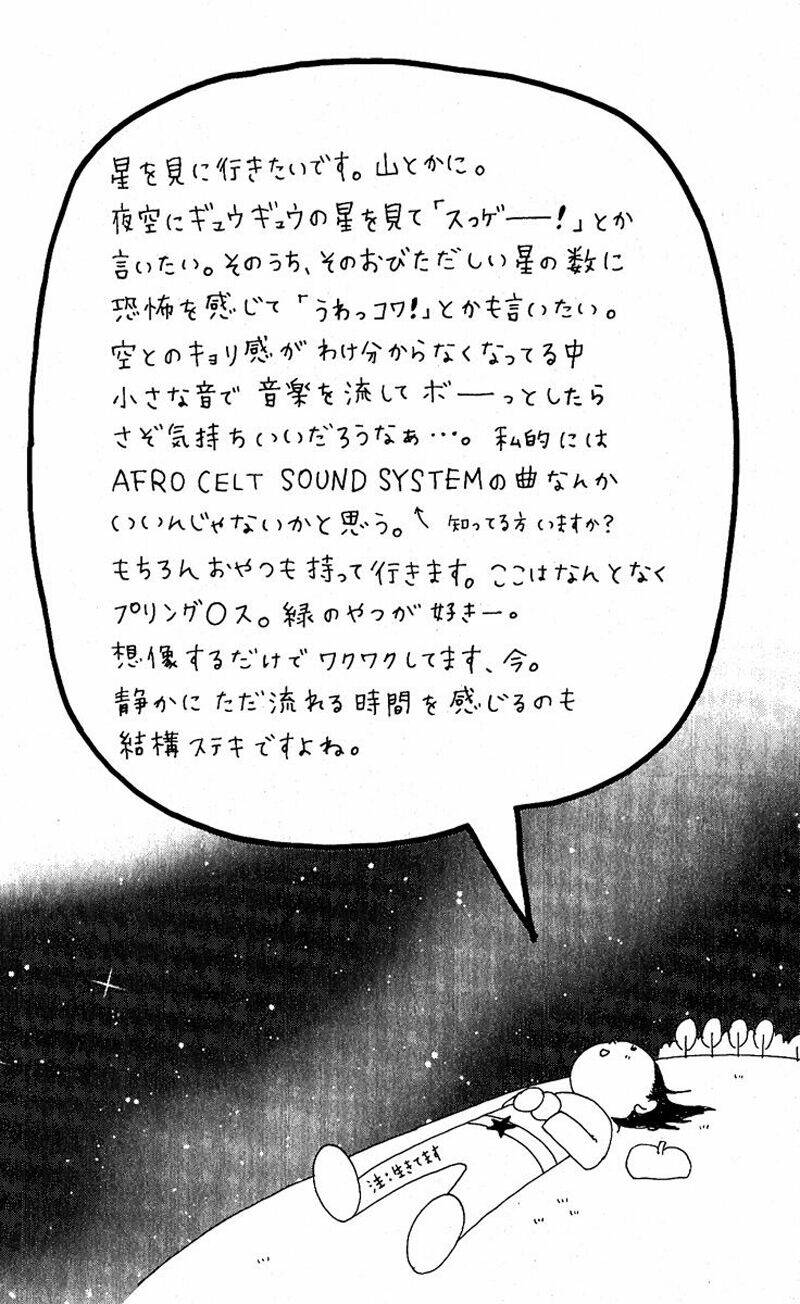 星を見に行きたいです。山とかに。
夜空にギュウギュウの星を見て「スっゲー!」とか
言いたい。そのうち、そのおびただしい星の数に
恐怖を感じて「うわっコワ!」とかも言いたい。
空とのキョリ感がわけ分からなくなってる中
小さな音で音楽を流してボーっとしたら
さぞ気持ちいいだろうなぁ…。私的には
AFRO CELT SOUND SYSTEMの曲なんか
いいんじゃないかと思う。↖知ってる方いますか?
もちろんおやつも持って行きます。ここはなんとなく
プリング○ス。緑のやつが好きー。
想像するだけでワクワクしてます、今。
静かにただ流れる時間を感じるのも
結構ステキですよね。
注:生きてます